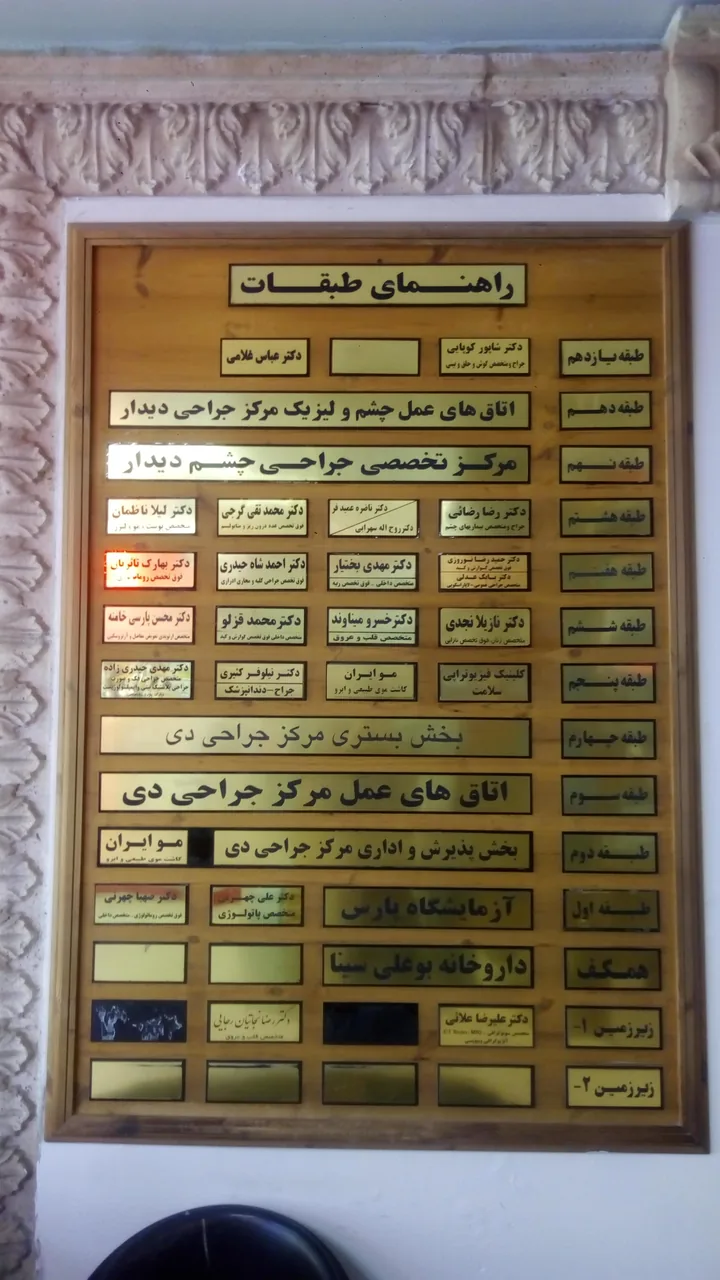 راهنمای طبقات
طبقه یازدهم
دکتر شاپور کوپایی
جراح و متخصص گوش و حلق و بینی
دکتر عباس غلامی
طبقه دهم
اتاق های عمل چشم و لیزیک مرکز جراحی دیدار
طبقه نهم
مرکز تخصصی جراحی چشم دیدار
طبقه هشتم
دکتر رضا رضائی
جراح و متخصص بیماریهای چشم
دکتر ناصره عمید فر
دکتر روح اله سهرابی
دکتر محمد تقی گرجی
فوق تخصص غدد درون ریز و متابولیسم
دکتر لیلا ناظمان
متخصص پوست ، مو و لیزر
طبقه هفتم
دکتر حمید رضا نوروزی
فوق تخصص گوارش و کبد
دکتر بابک عبدلی
متخصص جراحی عمومی-لاپاراسکوپی
دکتر مهدی بختیار
متخصص داخلی - فوق تخصص ریه
دکتر احمد شاه حیدری
فوق تخصص جراحی کلیه و مجاری ادراری
دکتر بهارک
فوق تخصص
طبقه ششم
دکتر نازیلا نجدی
متخصص زنان فوق تخصص نازایی
دکتر خسرو میناوند
متخصص قلب و عروق
دکتر محمد قزلو
متخصص داخلی فوق تخصص گوارش و کبد
دکتر محسن پارسی خامنه
متخصص ارتوپدی تعویض مفاصل و آرتروسکپی
طبقه پنجم
کلینیک فیزیوتراپی
سلامت
مو ایران
کاشت موی طبیعی و ابرو
دکتر نیلوفر کثیری
جراح-دندانپزشک
دکتر مهدی حیدری زاده
متخصص جراحی فک و صورت
طبقه چهارم
بخش بستری مرکز جراحی دی
طبقه سوم
اتاق های عمل مرکز جراحی دی
طبقه دوم
بخش پذیرش و اداری مرکز جراحی دی
مو ایران
کاشت موی طبیعی و ابرو
طبقه اول
آزمایشگاه پارس
دکتر علی چهرئی
متخصص پاتولوژی
دکتر صهبا چهرئی
فوق تخصص روماتولوژی - متخصص داخلی
همکف
داروخانه بوعلی سینا
زیرزمین ۱-
دکتر علیرضا علائی
دکتر رضا نجاتیان رجایی
متخصص قلب و عروق
زیرزمین ۲-